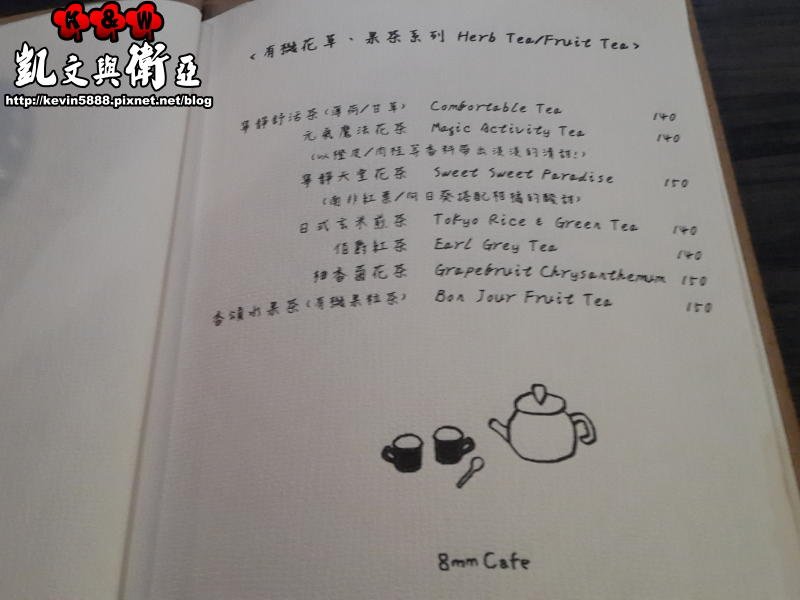 K&W
凱文與衛亞
http://kevin5888.pixnet.net/blog
<有機花草、果茶系列 Herb Tea/Fruit Tea>
寧靜舒活茶(薄荷/甘草) Comfortable Tea 140
元氣魔法花茶 Magic Activity Tea 140
(以橙皮/肉桂等香料帶出淡淡的清甜!)
寧靜天堂花茶 Sweet Sweet Paradise 150
(南非紅葉/向日葵搭配柑橘的酸甜)
日式玄米煎茶 Tokyo Rice & Green Tea 140
伯爵紅茶 Earl Grey Tea 140
柚香菊花茶 Grapefruit Chrysanthemum 150
香頌水果茶(有機果粒茶) Bon Jour Fruit Tea 150
8mm Cafe